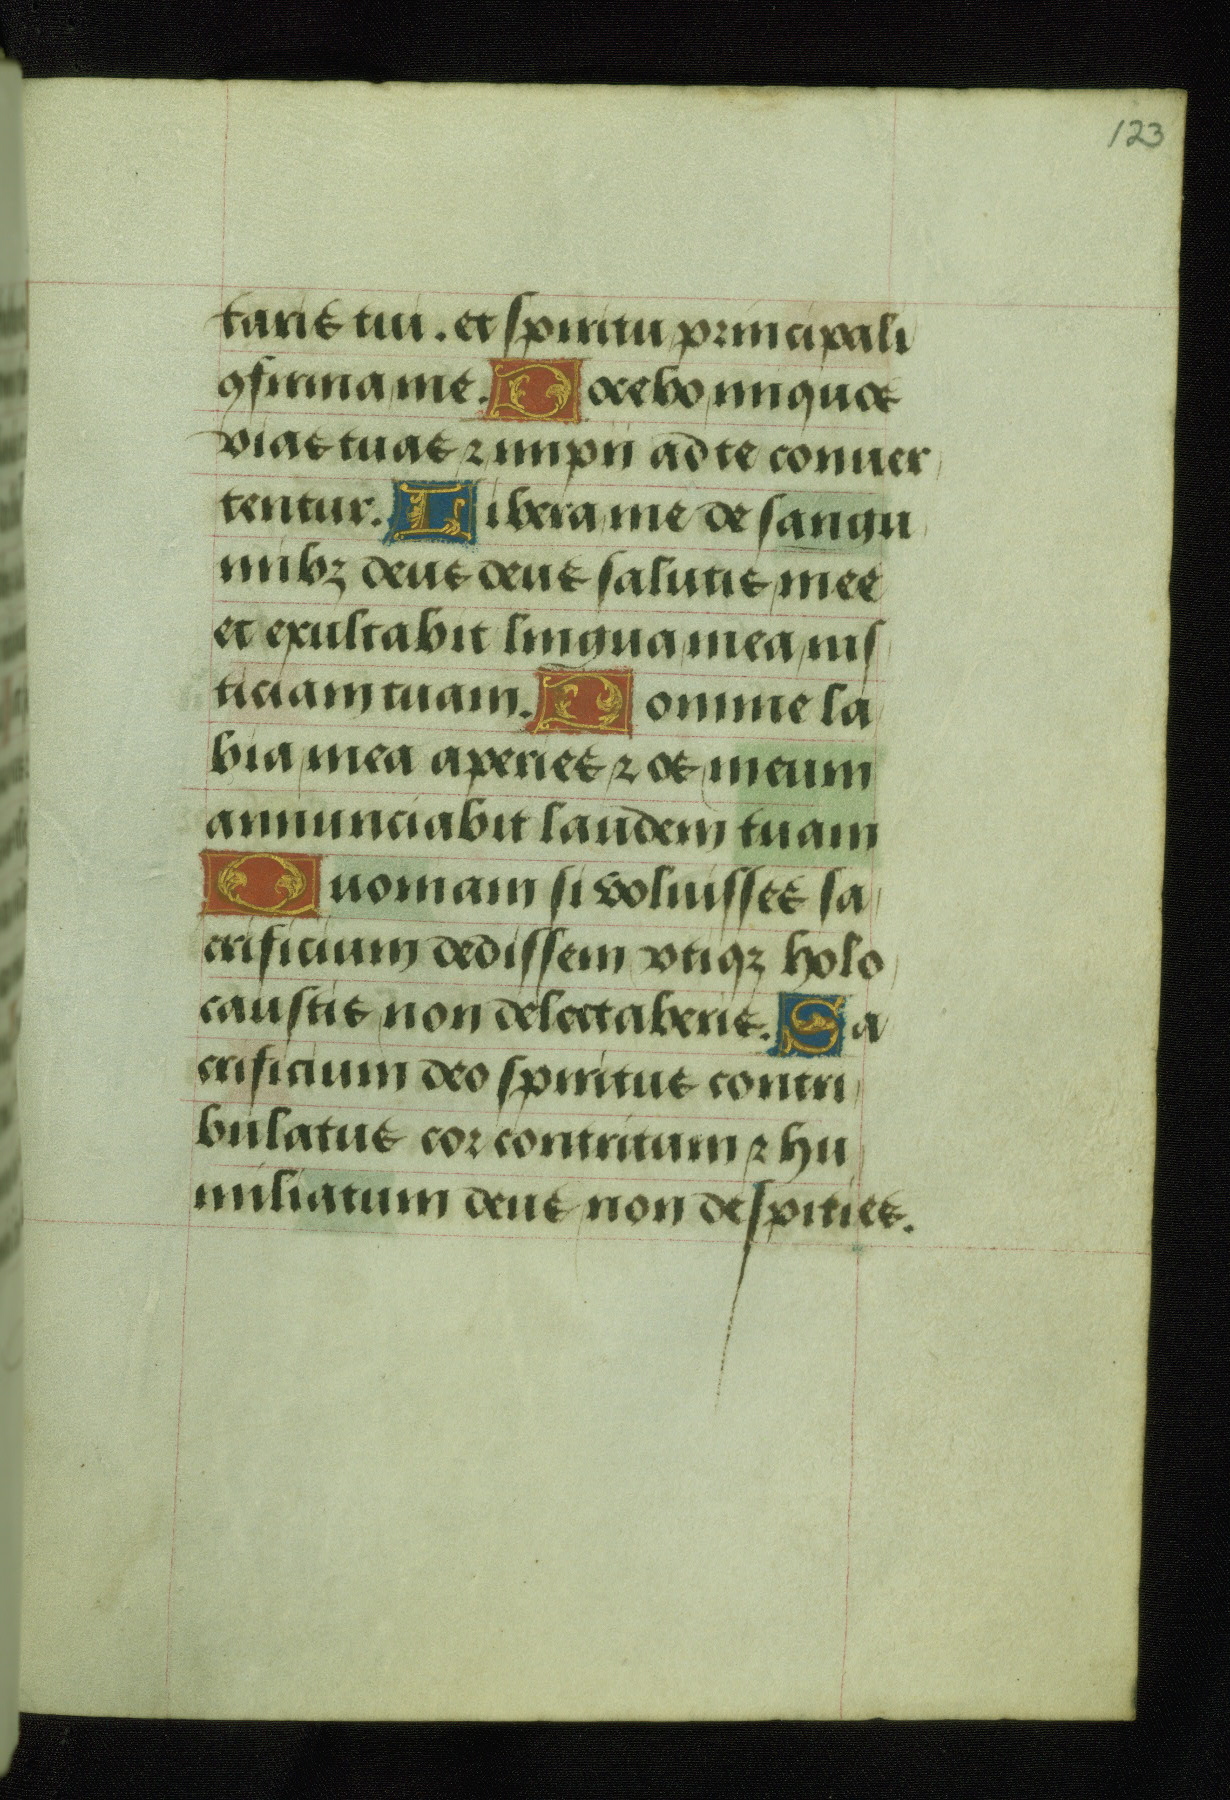 123
taris tui. et spiritu principali
ꝯfirma me. Docebo iniquos
vias tuas ⁊ impii ad te conuer
tentur. Libera me de sangui
nibꝫ deus deus salutis mee
et exultabit lingua mea ius
ticiam tuam. Domine la
bia mea aperies ⁊ os meum
annunciabit laudem tuam
Quoniam si voluisses sa
crificium dedissem vtiqꝫ holo
caustis non delectaberis. Sa
crificium deo spiritus contri
bulatus cor contritum ⁊ hu
miliatum deus non despities.